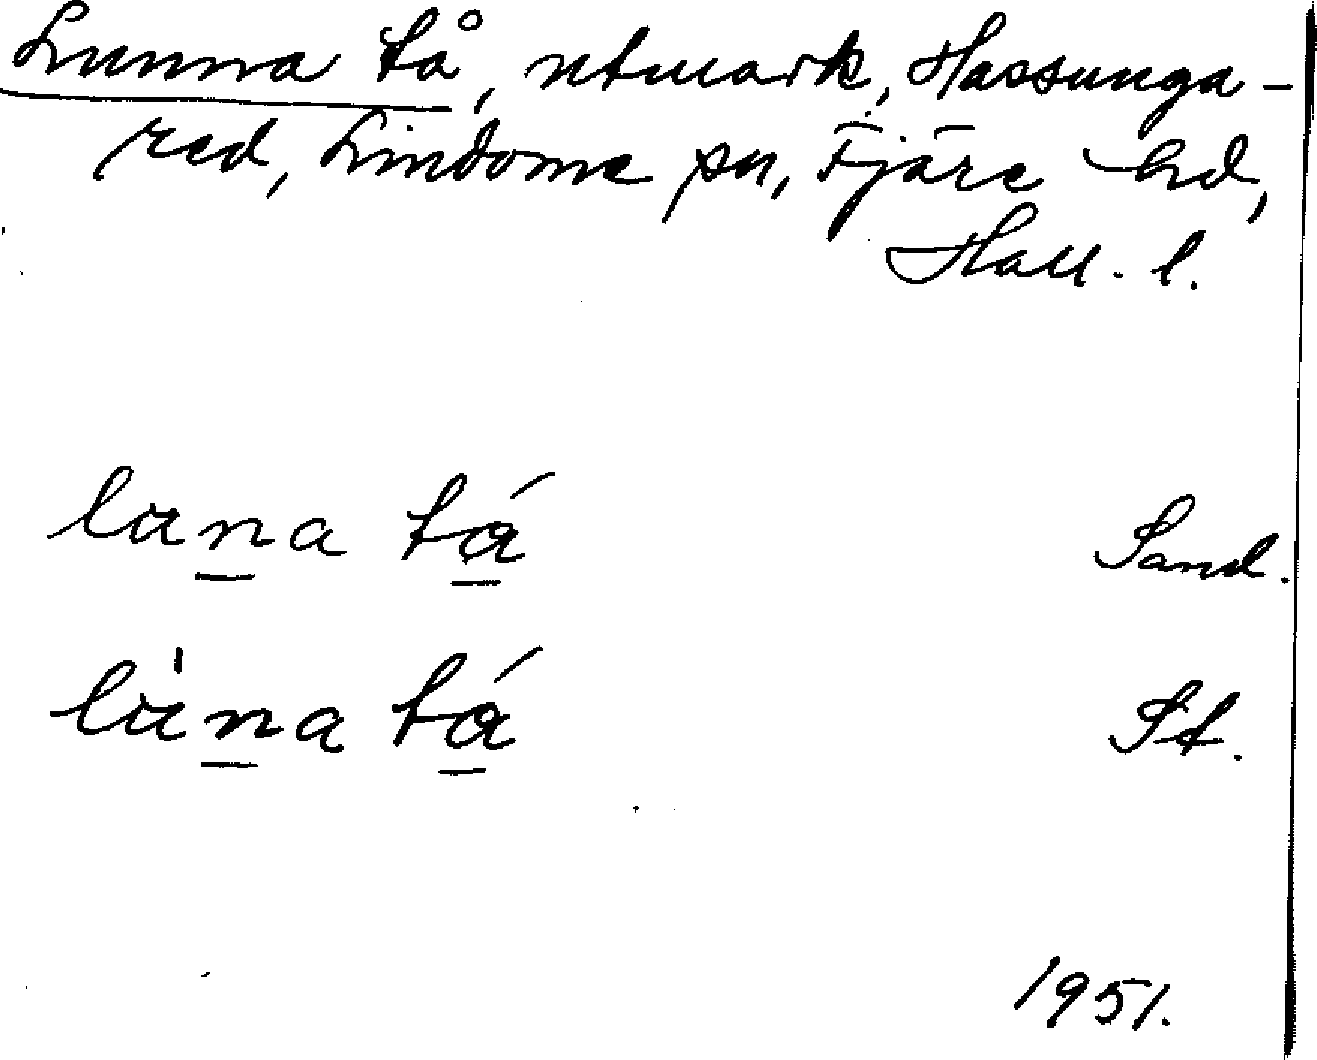 Lunna tå, utmark, Hassunga-
red, Lindome sn, Fjäre hd,
Hall. l.
luna tá Sand.
lu̍na tá St.
1951.